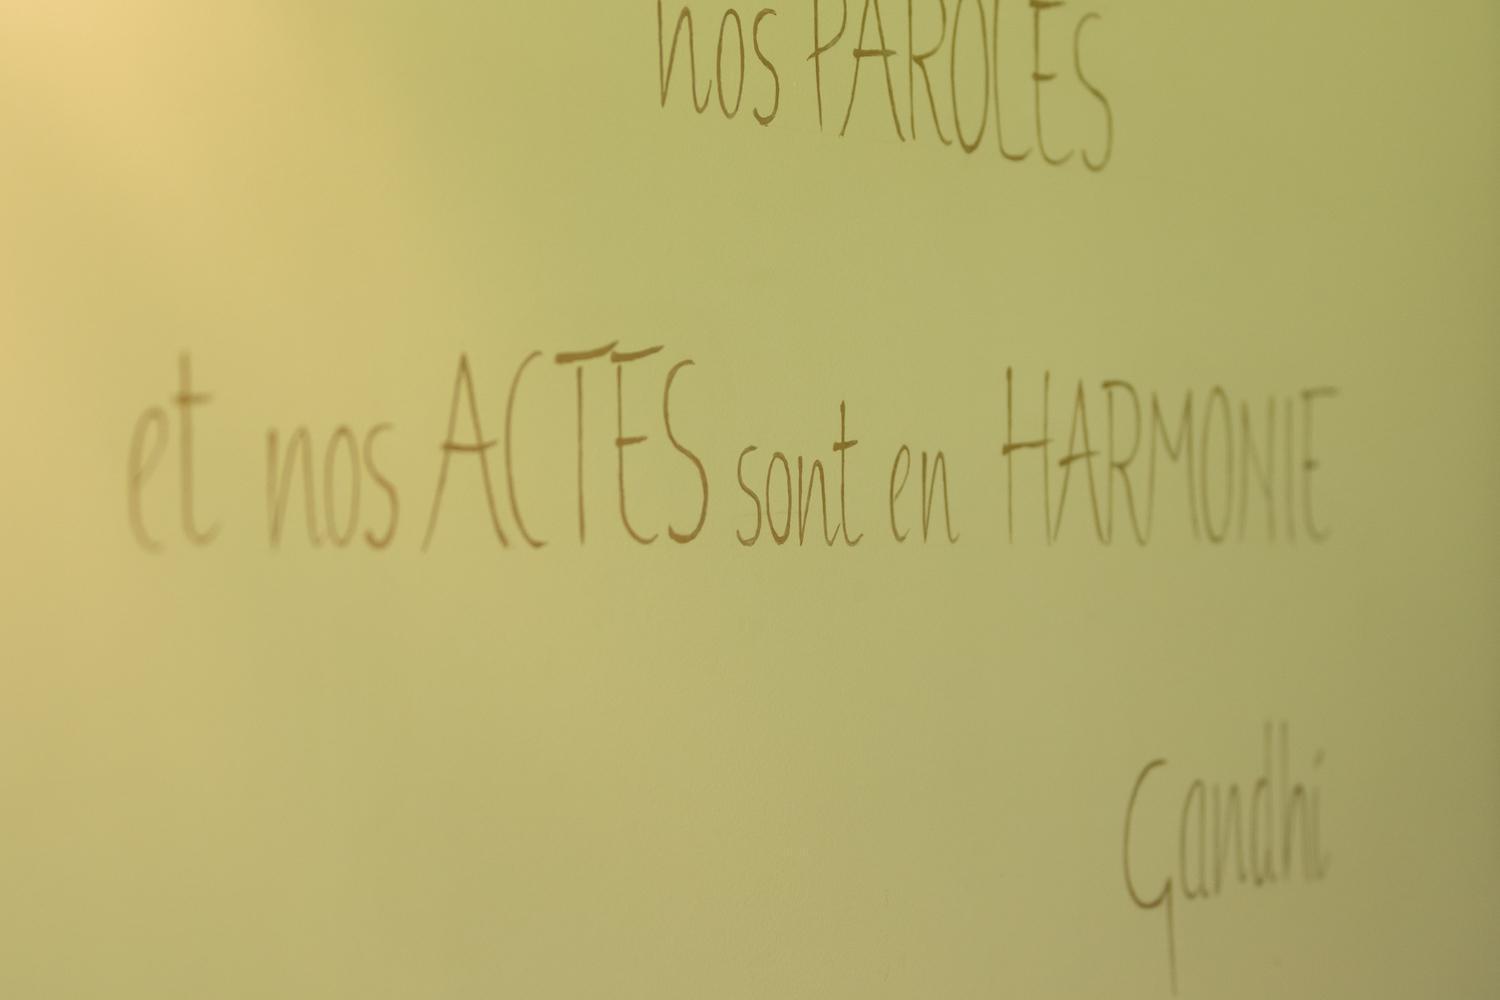 nos PAROLES
et nos ACTES sont en HARMONIE
Gandhi